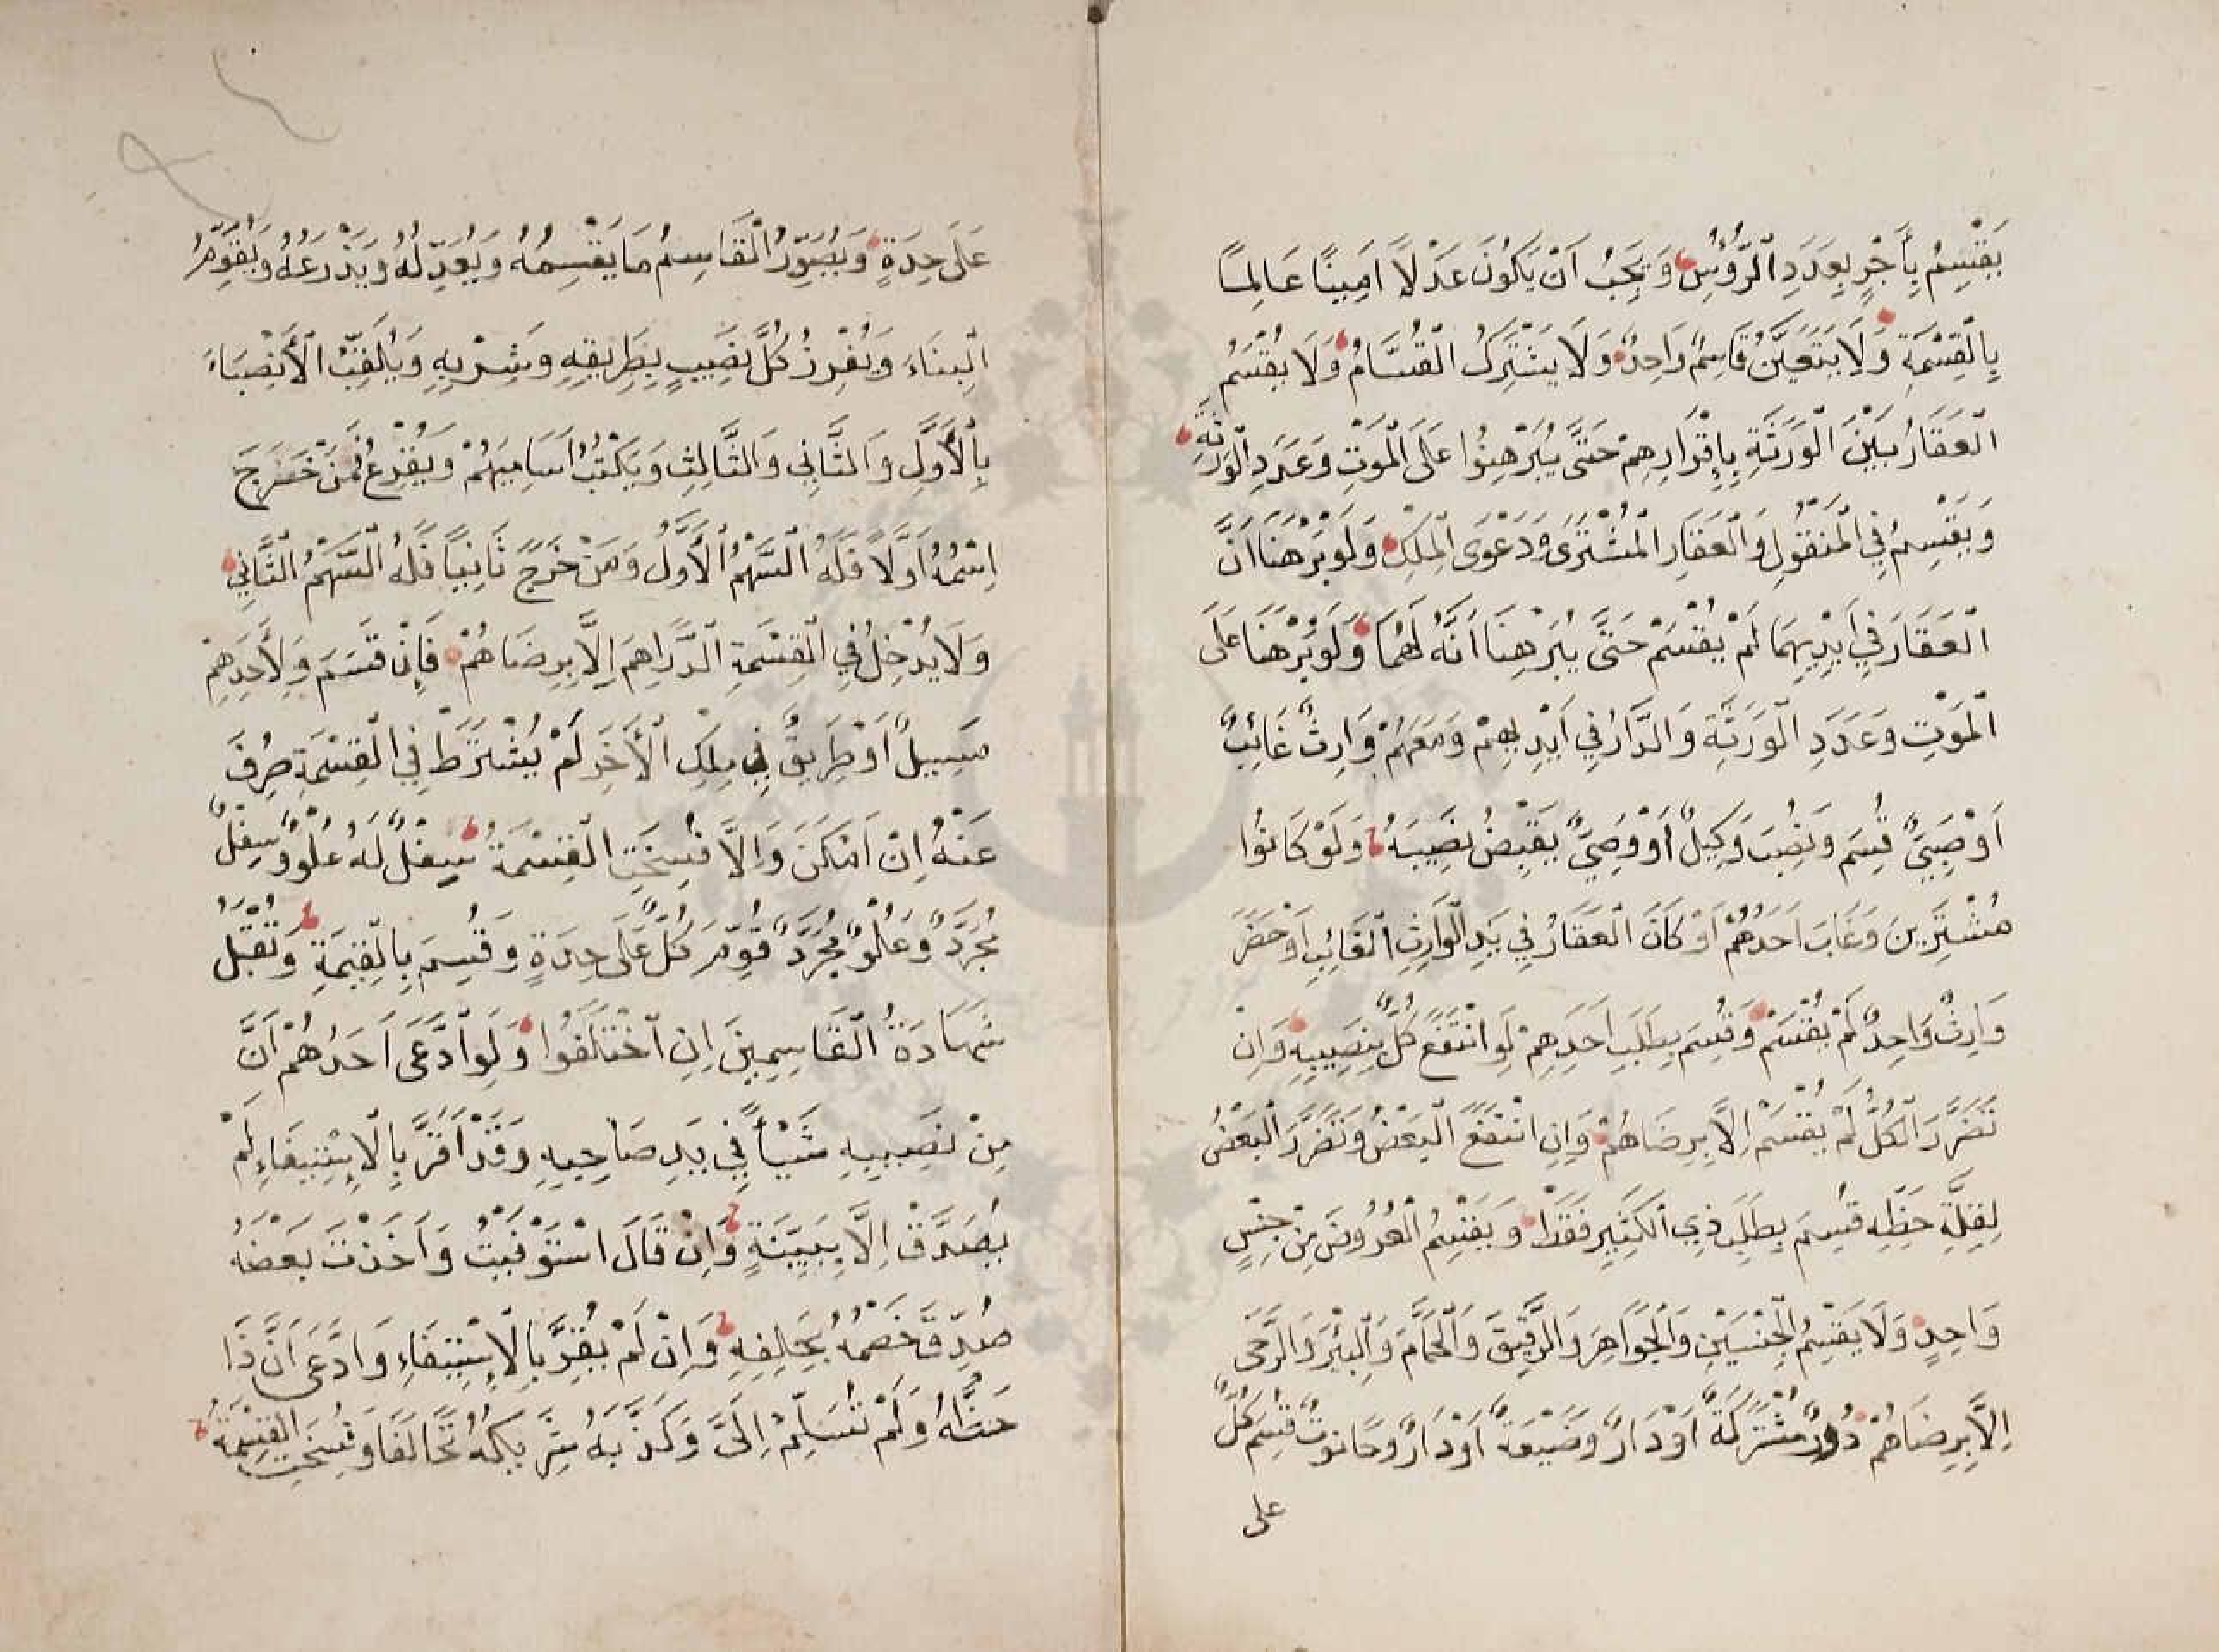 يَقْسِمُ بِأَجْرٍ بِعَدَدِ الرُّؤُسِ وَيَجِبُ اَنْ يَكُونَ عَدْلًا اَمِينًا عَالِمًا
بِالْقِسْمَةِ وَلَا يَتَعَيَّنُ قَاسِمٌ وَاحِدٌ وَلَا يَشْتَرِكُ الْقُسَّامُ وَلَا يُقْسَمُ
الْعَقَارُ بَيْنَ الْوَرَثَةِ بِإِقْرَارِهِمْ حَتَّى يُبَرْهِنُوا عَلَى الْمَوْتِ وَعَدَدِ الْوَرَثَةِ
وَيُقْسِمُ فِي الْمَنْقُولِ وَالْعَقَارِ الْمُشْتَرَى وَدَعْوَى الْمِلْكِ وَلَوْ بَرْهَنَا اَنَّ
الْعَقَارَ فِي اَيْدِيهِمَا لَمْ يُقْسَمْ حَتَّى يُبَرْهِنَا اَنَّهُ لَهُمَا وَلَوْ بَرْهَنَا عَلَى
الْمَوْتِ وَعَدَدِ الْوَرَثَةِ وَالدَّارُ فِي اَيْدِيهِمْ وَمَعَهُمْ وَارِثٌ غَائِبٌ
اَوْ صَبِيٌّ قُسِمَ وَنُصِبَ وَكِيلٌ اَوْ وَصِيٌّ يَقْبِضُ نَصِيبَهُ وَلَوْ كَانُوا
مُشْتَرِينَ وَغَابَ اَحَدُهُمْ اَوْ كَانَ الْعَقَارُ فِي يَدِ الْوَارِثِ الْغَائِبِ اَوْ حَضَرَ
وَارِثٌ وَاحِدٌ لَمْ يُقْسَمْ وَقُسِمَ بِطَلَبِ اَحَدِهِمْ لَوِ انْتَفَعَ كُلٌّ بِنَصِيبِهِ وَاِنْ
تَضَرَّرَ الْكُلُّ لَمْ يُقْسَمْ اِلَّا بِرِضَاهُمْ وَاِنِ انْتَفَعَ الْبَعْضُ وَتَضَرَّرَ الْبَعْضُ
لِقِلَّةِ حَظِّهِ قُسِمَ بِطَلَبِ ذِي الْكَثِيرِ فَقَطْ وَيَقْسِمُ الْعُرُوضَ مِنْ جِنْسٍ
وَاحِدٍ وَلَا يَقْسِمُ الْجِنْسَيْنِ وَالْجَوَاهِرَ وَالرَّقِيقَ وَالْحَمَّامَ وَالْبِئْرَ وَالرَّحَى
اِلَّا بِرِضَاهُمْ دُورٌ مُشْتَرَكَةٌ اَوْ دَارٌ وَضَيْعَةٌ اَوْ دَارٌ وَحَانُوتٌ قُسِمَ كُلٌّ
على
عَلَى حِدَةٍ وَيُصَوِّرُ الْقَاسِمُ مَا يَقْسِمُهُ وَيُعَدِّلُهُ وَيَذْرَعُهُ وَيُقَوِّمُ
الْبِنَاءَ وَيُفْرِزُ كُلَّ نَصِيبٍ بِطَرِيقِهِ وَشِرْبِهِ وَيُلَقِّبُ الْأَنْصِبَاءَ
بِالْأَوَّلِ وَالثَّانِي وَالثَّالِثِ وَيَكْتُبُ اَسَامِيَهُمْ وَيُقْرِعُ فَمَنْ خَرَجَ
اِسْمُهُ اَوَّلًا فَلَهُ السَّهْمُ الْأَوَّلُ وَمَنْ خَرَجَ ثَانِيًا فَلَهُ السَّهْمُ الثَّانِي
وَلَا يُدْخِلُ فِي الْقِسْمَةِ الدَّرَاهِمَ اِلَّا بِرِضَاهُمْ فَإِنْ قَسَمَ وَلِأَحَدِهِمْ
مَسِيلٌ اَوْ طَرِيقٌ فِي مِلْكِ الْأَخَرِ لَمْ يُشْتَرَطْ فِي الْقِسْمَةِ صُرِفَ
عَنْهُ اِنْ اَمْكَنَ وَاِلَّا فُسِخَتِ الْقِسْمَةُ سِفْلٌ لَهُ عُلْوٌ وَسِفْلٌ
مُجَرَّدٌ وَعُلْوٌ مُجَرَّدٌ قُوِّمَ كُلٌّ عَلَى حِدَةٍ وَقُسِمَ بِالْقِيمَةِ وَتُقْبَلُ
شَهَادَةُ الْقَاسِمِينَ اِنِ اخْتَلَفُوا وَلَوِ ادَّعَى اَحَدُهُمْ اَنَّ
مِنْ نَصِيبِهِ شَيْأً فِي يَدِ صَاحِبِهِ وَقَدْ اَقَرَّ بِالْإِسْتِيفَاءِ لَمْ
يُصَدَّقْ اِلَّا بِبَيِّنَةٍ وَاِنْ قَالَ اسْتَوْفَيْتُ وَاَخَذْتَ بَعْضَهُ
صُدِّقَ خَصْمُهُ بِحَلِفِهِ وَاِنْ لَمْ يُقِرَّ بِالْإِسْتِيفَاءِ وَادَّعَى اَنَّ ذَا
حَظُّهُ وَلَمْ تُسَلِّمْ اِلَيَّ وَكَذَّبَهُ شَرِيكُهُ تَحَالَفَا وَفُسِخَتِ الْقِسْمَةُ